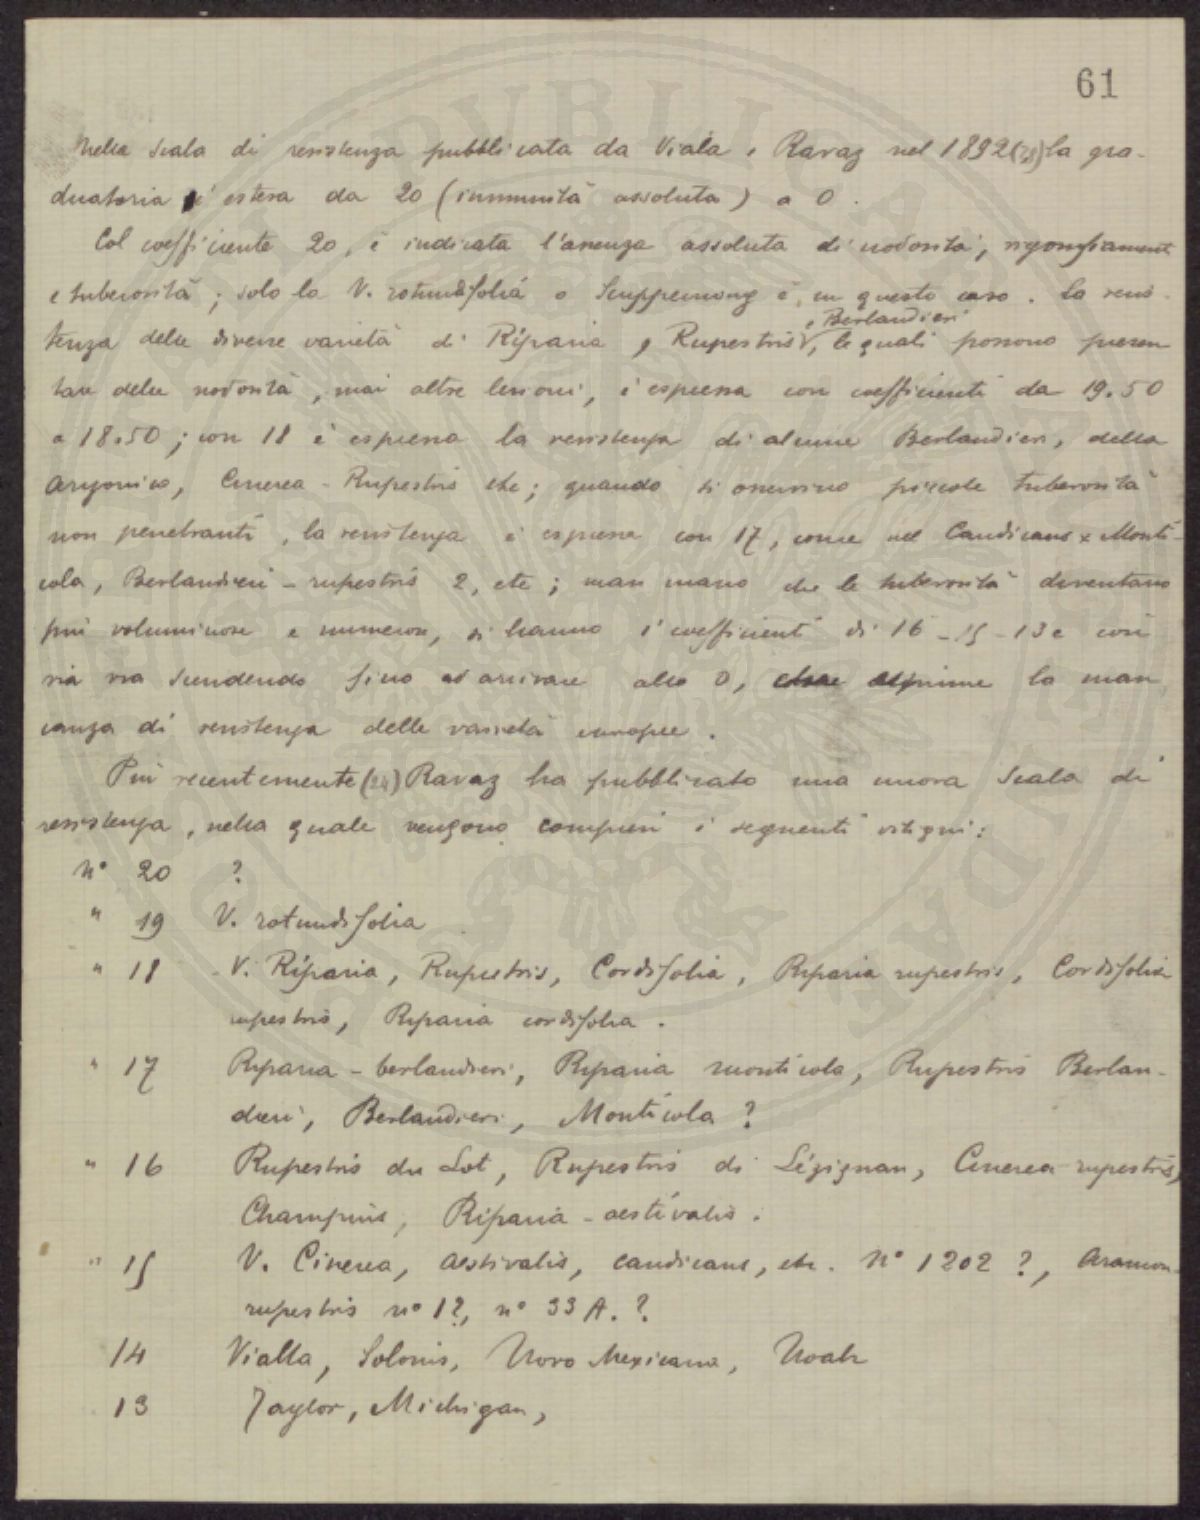 61
Nella scala di resistenza pubblicata da Viala e Ravaz nel 1892 (23) la gra-
duatoria è estesa da 20 (immunità assoluta) a 0.
Col coefficiente 20, è indicata l'assenza assoluta di nodosità, rigonfiamenti
e tuberosità; solo la V. rotundifolia o Scuppernong è in questo caso. La resis-
tenza delle diverse varietà di Riparia, Rupestris, e Berlandieri le quali possono presen
tare delle nodosità, mai altre lesioni, è espressa con coefficienti da 19.50
a 18.50; con 18 è espressa la resistenza di alcune Berlandieri, della
Arizonica, Cinerea - Rupestris etc; quando si osservino piccole tuberosità
non penetranti, la resistenza è espressa con 17, come nel Candicans x Monti-
cola, Berlandieri - rupestris 2, etc; man mano che le tuberosità diventano
più voluminose e numerose, si hanno i coefficienti di 16 - 15 - 13 e così
via via scendendo fino ad arrivare allo 0, che esprime la man
canza di resistenza delle varietà europee.
Più recentemente (24) Ravaz ha pubblicato una nuova Scala di
resistenza, nella quale vengono compresi i seguenti vitigni:
N° 20 ?
" 19 V. rotundifolia
" 18 V. Riparia, Rupestris, Cordifolia, Riparia rupestris, Cordifolia
rupestris, Riparia cordifolia.
" 17 Riparia - berlandieri, Riparia monticola, Rupestris Berlan-
dieri, Berlandieri, Monticola ?
" 16 Rupestris du Lot, Rupestris di Lézignan, Cinerea-rupestris,
Champins, Riparia - aestivalis.
" 15 V. Cinerea, Aestivalis, candicans, etc. N° 1202 ?, Aramon-
rupestris n° 1?, n° 33 A. ?
14 Vialla, Solonis, Novo Mexicana, Noah
13 Taylor, Michigan,